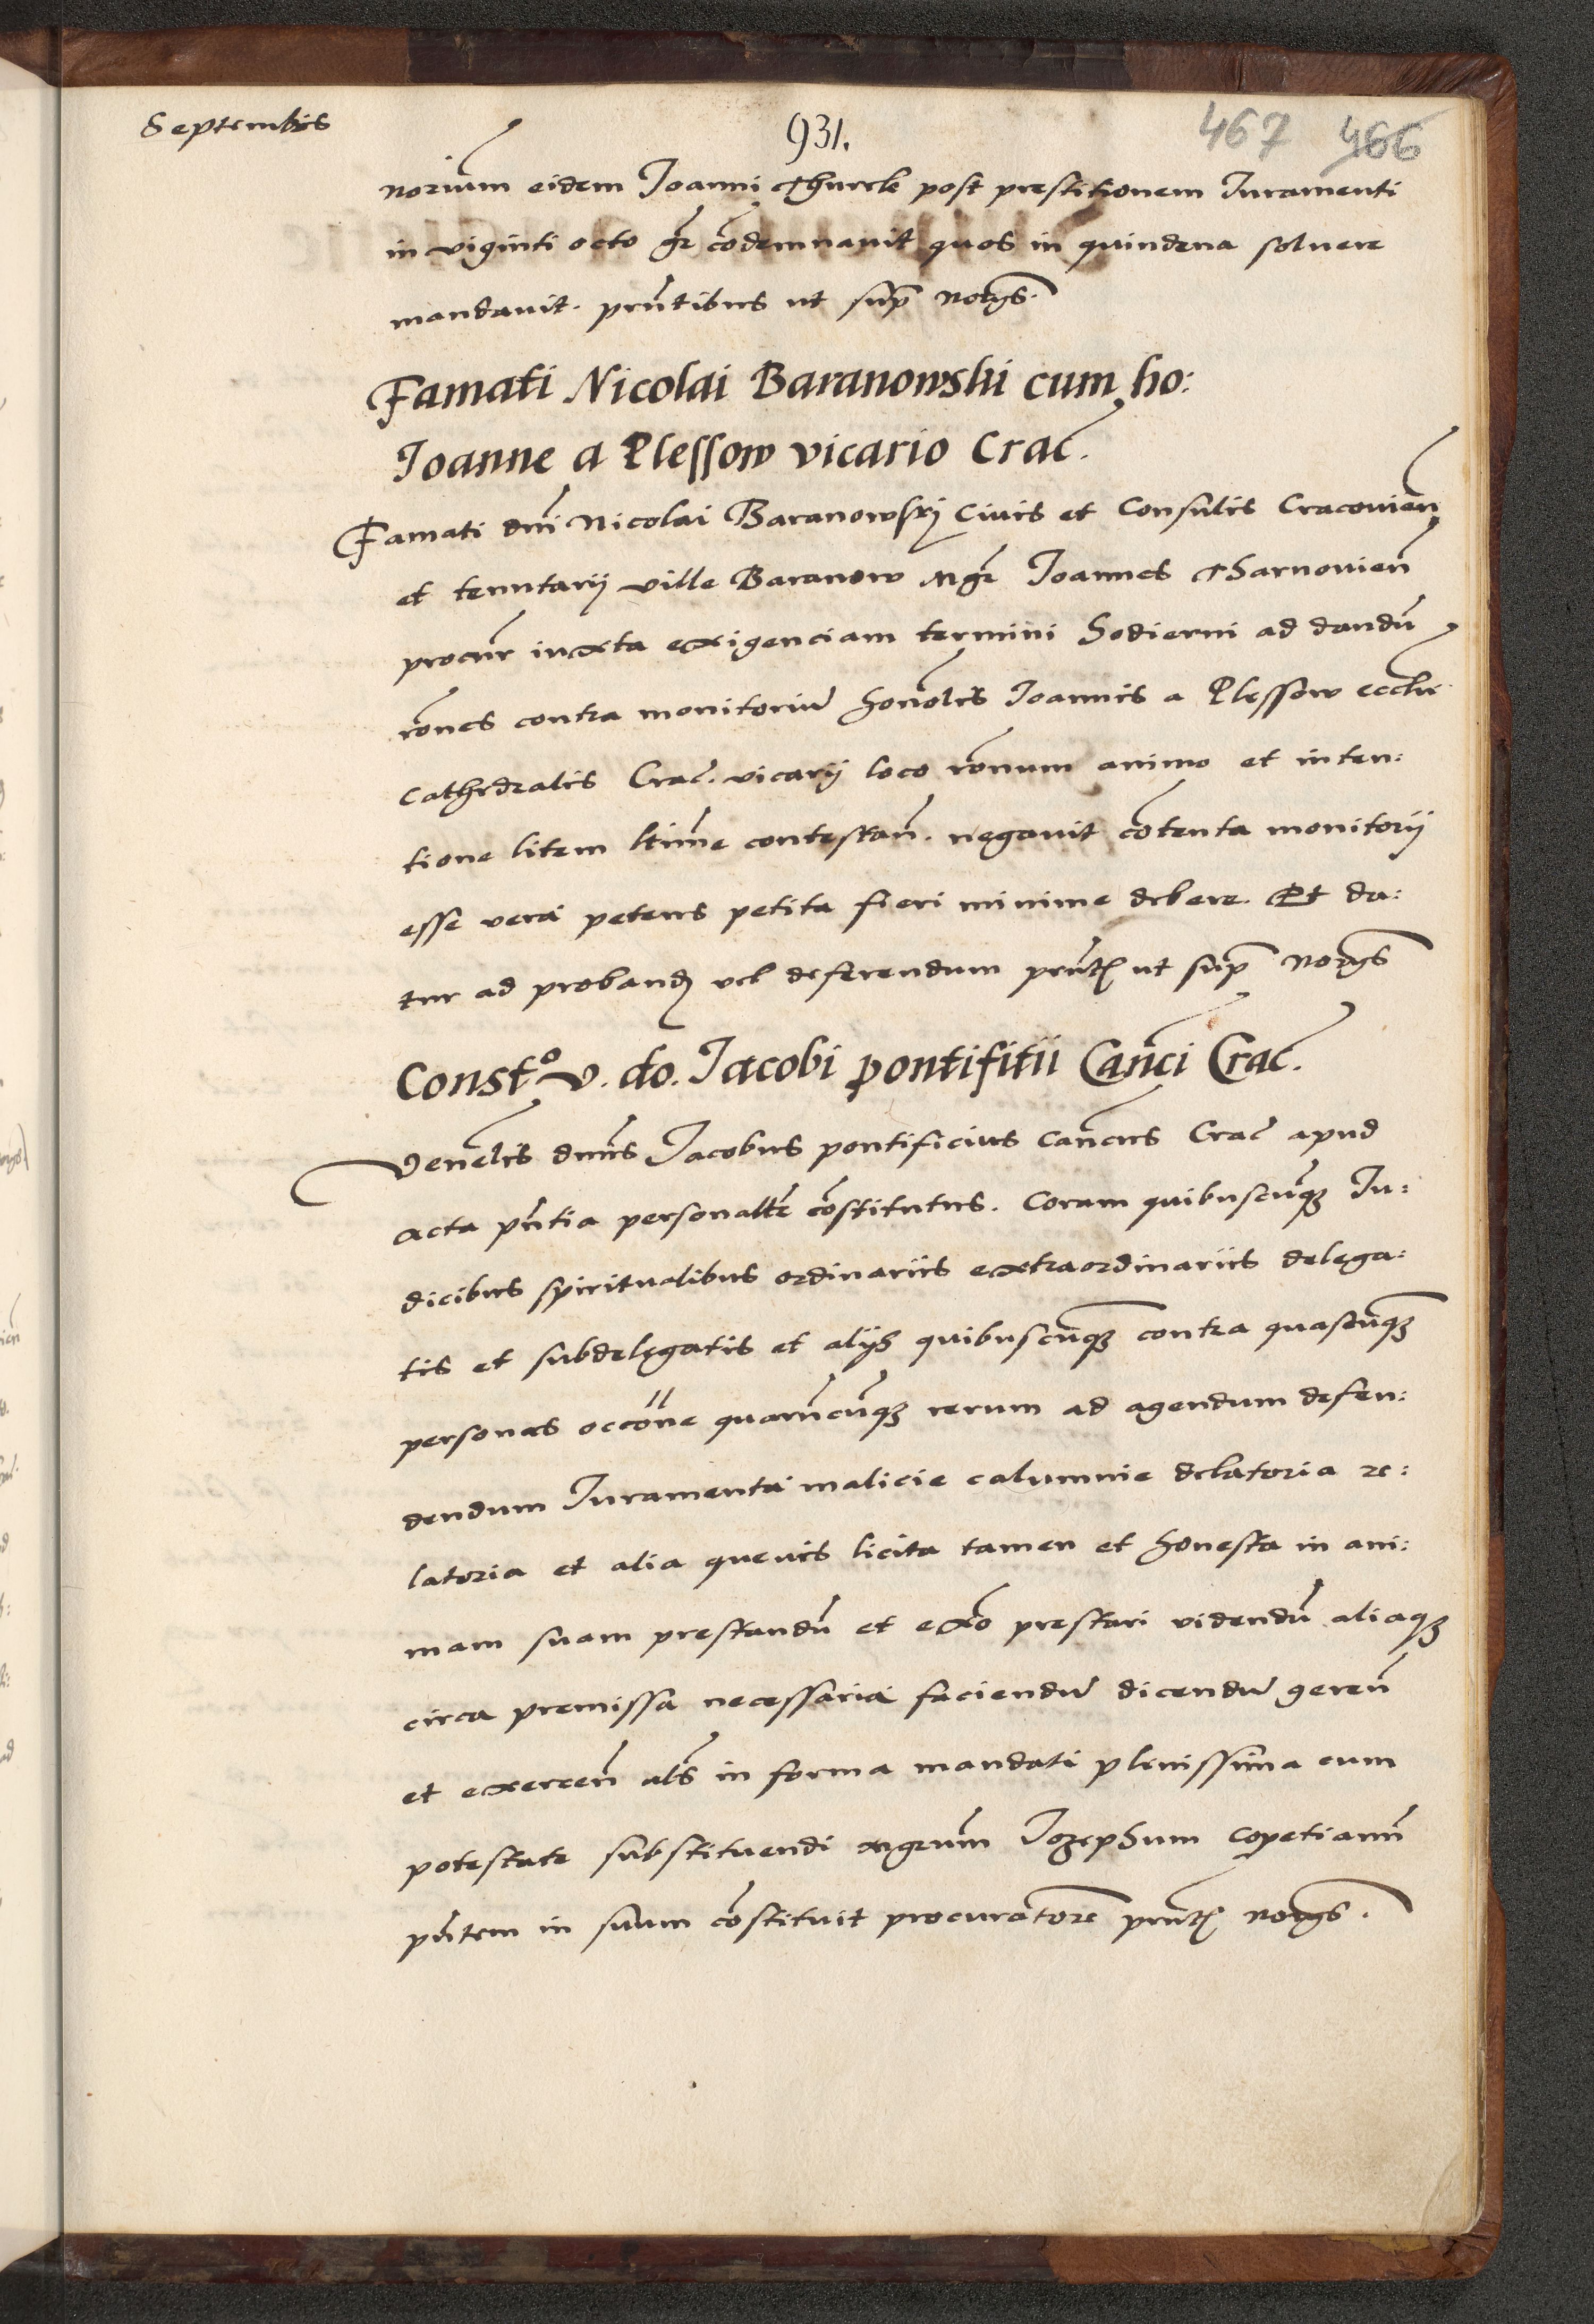 Septembris
931.
467 466
norium eidem Joanni Thurek post prestitionem Juramenti
in viginti octo gr̃ cõdemnavit quos in quindena solvere
mandavit. pñtibus ut sup̃ norgs.
Famati Nicolai Baranowski cum ho:
Joanne a Plessow vicario Crac̃.
Famati dñi Nicolai Baranowskj Civis et Consulis Cracovien̄
et tenutarij ville Baranow Mgr̃ Joannes Tharnovien̄
procur̃ iuxta exigenciam termini hodierni ad dandũ
rõnes contra monitoriũ honolis̃ Joannis a Plessow eccłie
cathedralis Crac̃. vicarij loco rõnum animo et inten:
tione litem łtime contestañ. negavit cõtenta monitorij
esse vera petens petita fieri minime debere. Et da:
tur ad proband̃ vel deferendum pñt̃ ut sup̃ norgs
Const.º v. do. Jacobi pontifitii Canc̃i Crac̃.
Venełis dnus̃ Jacobus pontificius Canc̃us Crac̃ apud
acta pñtia personalłe cõstitutus. Coram quibuscũq̃ Ju:
dicibus spiritualibus ordinariis extraordinariis delega:
tis et subdelegatis et alijs quibuscũq̃ contra quascũq̃
personas occõne quarũcũq̃ rerum ad agendum defen:
dendum Juramenta malicie calumnie delatoria re:
latoria et alia quevis licita tamen et honesta in ani:
mam suam prestandũ et exõ prestari videndũ aliaq̃
circa premissa necessaria faciendũ dicendũ gereñ
et exerceñ als̃ in forma mandati plenissima cum
potestate substituendi mgrum̃ Jozephum Copetianũ
pñtem in suum cõstituit procuratorẽ pñt̃ norgs.